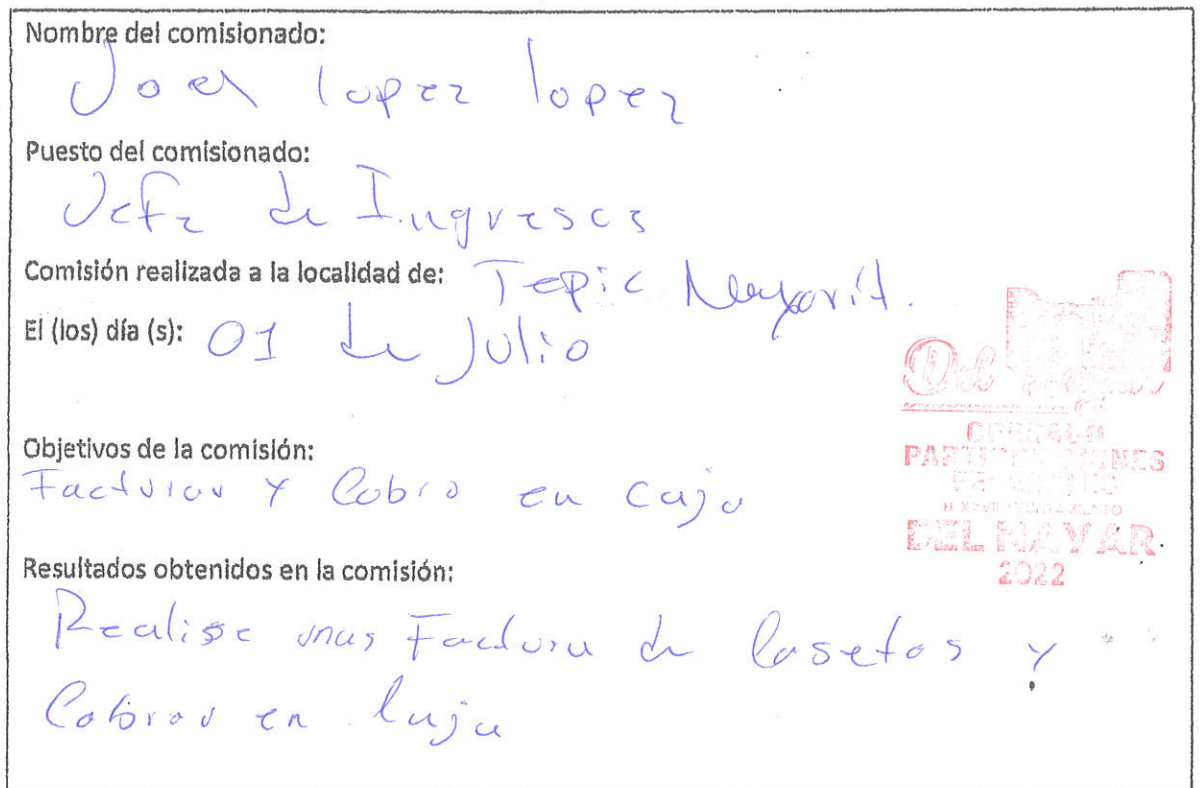 Nombre del comisionado:
Joel lopez lopez
Puesto del comisionado:
Jefe de Ingresos
Comisión realizada a la localidad de: Tepic Nayarit.
El (los) día (s): 01 de Julio
Objetivos de la comisión:
Facturar y Cobro en caja
Resultados obtenidos en la comisión:
Realise unas Factura de Casetas y
Cobrar en Caja
Del Nayar
PARTICIPACIONES
H XXVII AYUNTAMIENTO
DEL NAYAR
2022